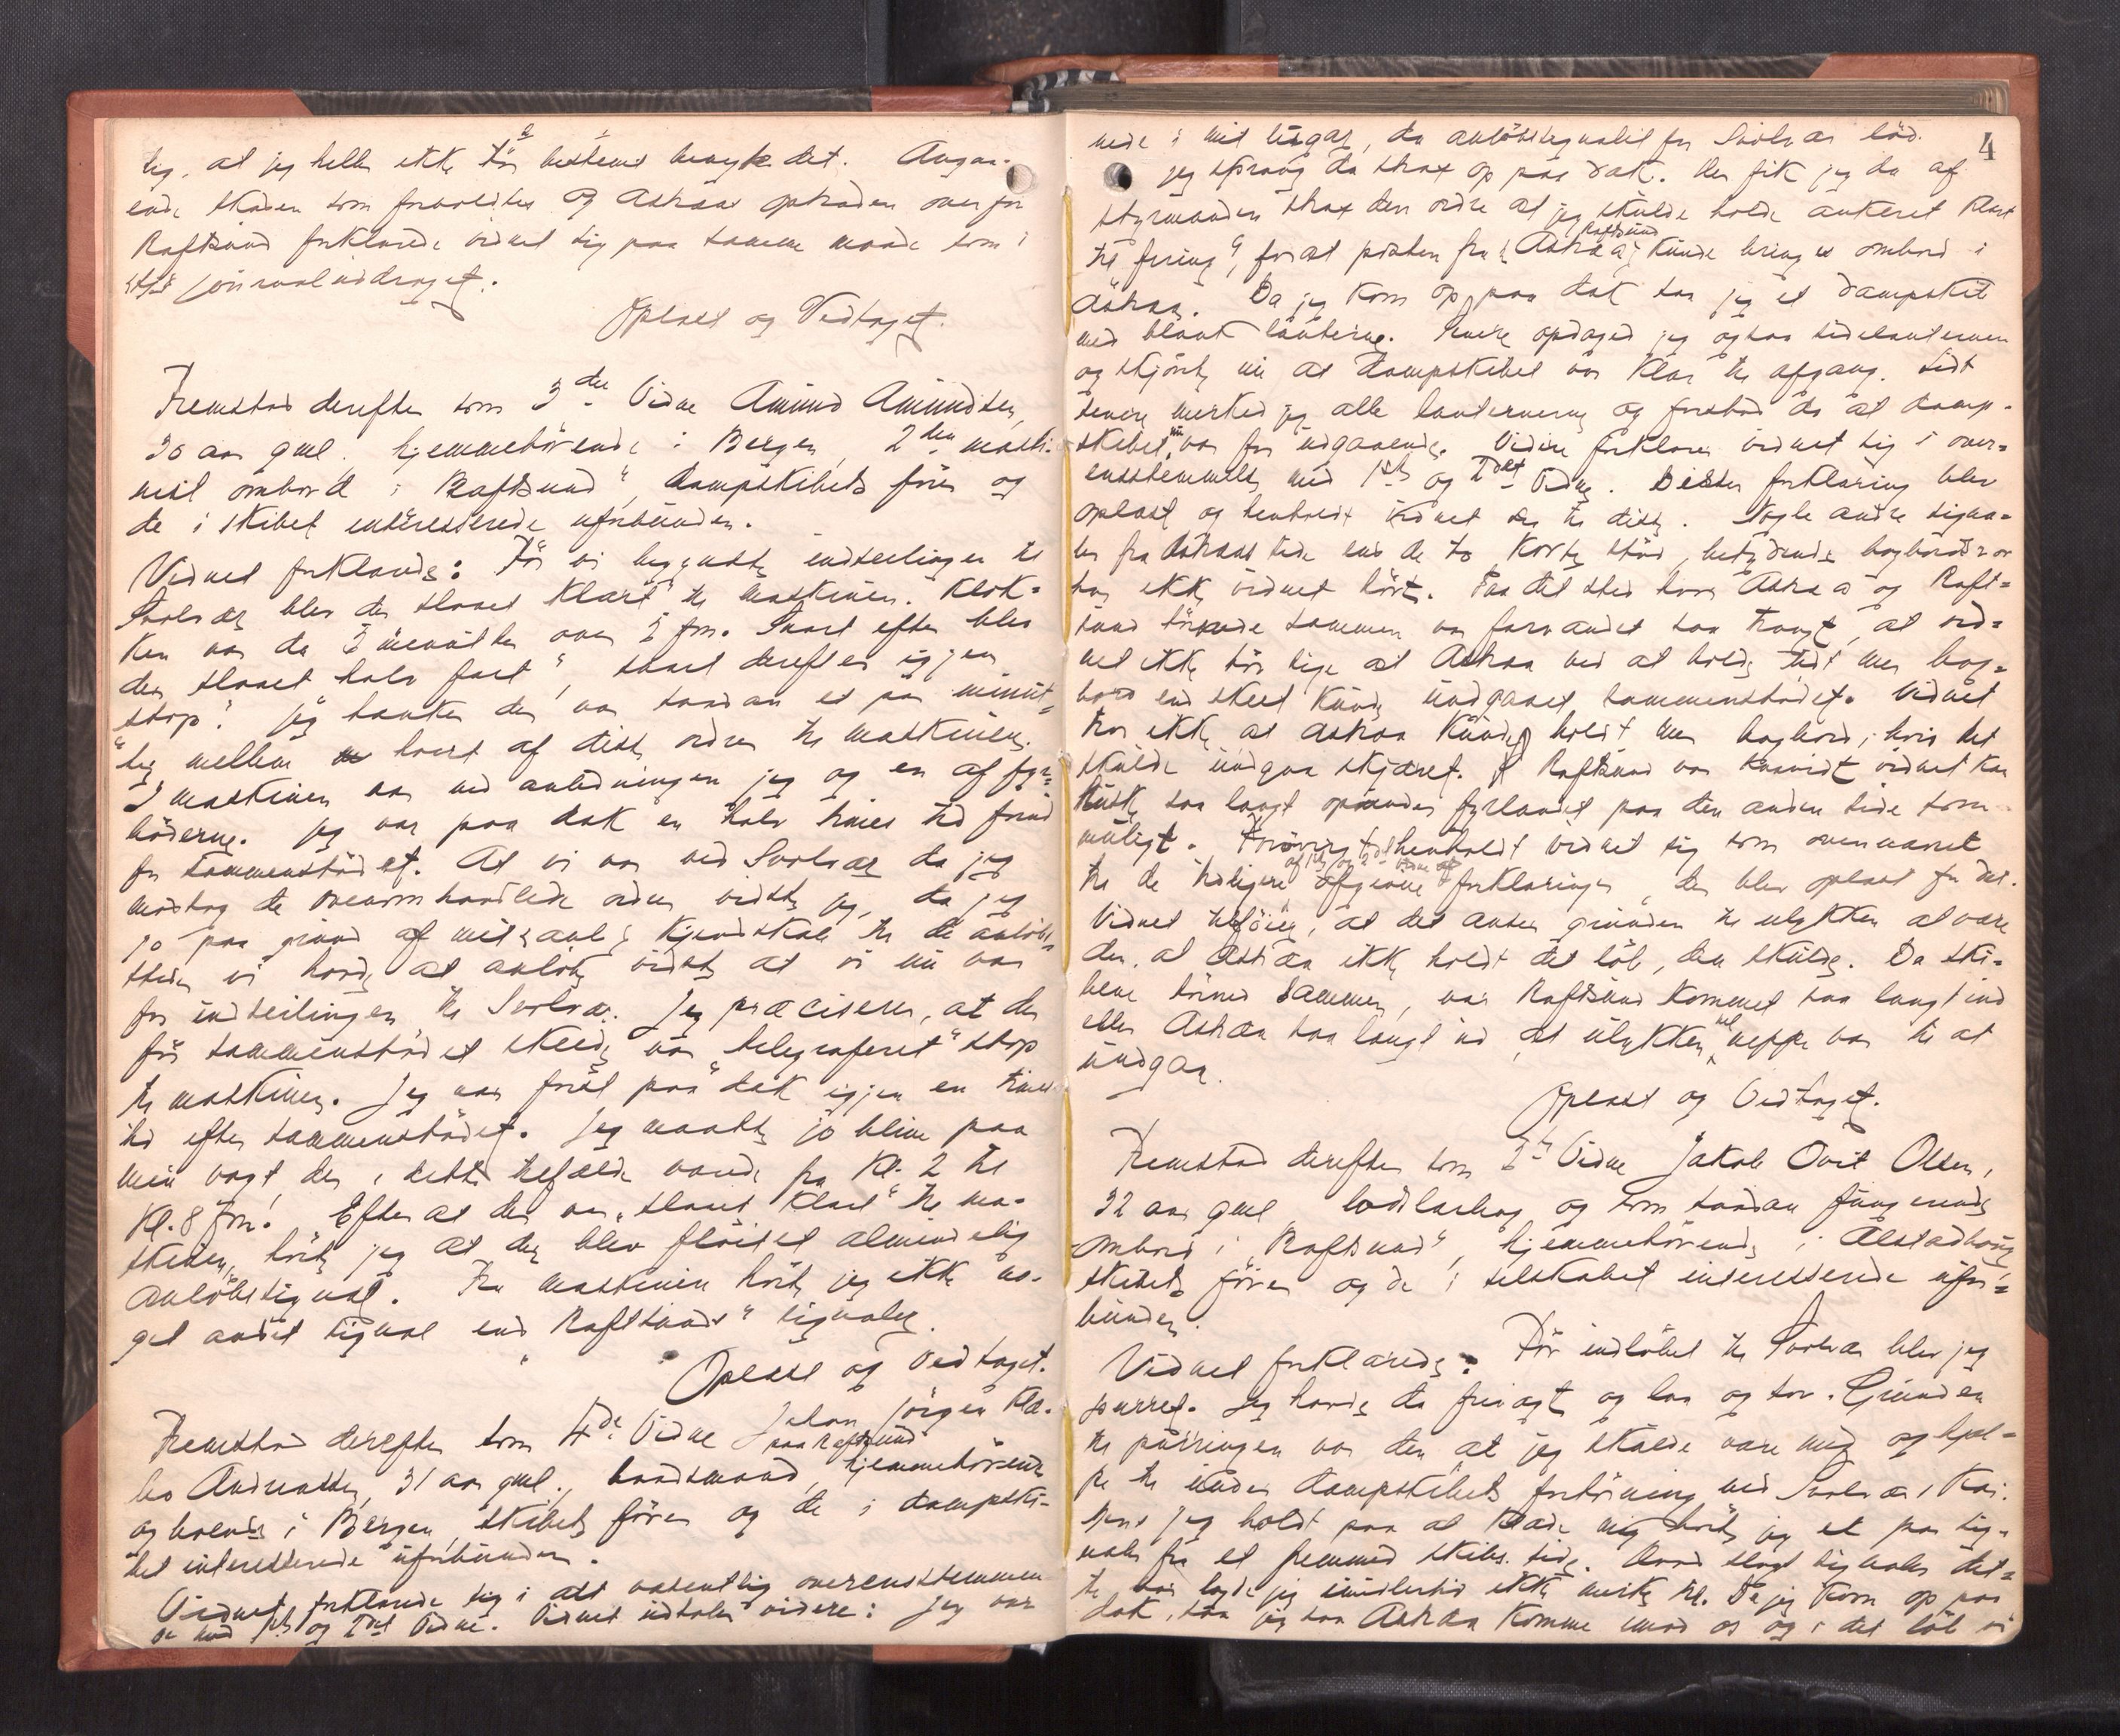 lig, at jeg heller ikke tör bestemt benegte det. Angaa-
ende skaden som forvoldtes og Astræas optræden overfor
Raftsund forklarede vidnet sig paa samme maade som i
journaluddraget.
Oplæst og Vedtaget.
Fremstod derefter som 3die Vidne Amund Amundsen,
30 aar gml. hjemmehörende i Bergen, 2den maski-
nist ombord i "Raftsund", dampskibets förer og
de i skibet interesserede uforbunden.
Vidnet forklarede: För vi begyndte indseilingen til
Svolvær blev der slaaet "klart" til maskinen. Klok-
ken var da 3 minutter over 2 fm. Snart efter blev
der slaaet "halv fart", snart derefter igjen
"stop". Jeg tænker der var saadan et par minut-
ter mellem hvert af disse ordrer til maskinen.
I maskinen var ved anledningen jeg og en af fyr-
böderne. Jeg var paa dæk en halv times tid forud
for sammenstödet. At vi var ved Svolvær da jeg
modtog de ovenomhandlede ordrer vidste jeg, da jeg
jo paa grund af mit kjendskab til de anlöbs-
steder vi havde at anlöbe vidste at vi nu var
for indseilingen til Svolvær. Jeg præciserer, at der
för sammenstödet skeede var "telegraferet" stop
til maskinen. Jeg var först paa dæk igjen en times
tid efter sammenstödet. Jeg maatte jo blive paa
min vagt, der i dette tilfælde varede fra Kl. 2 til
Kl. 8 fm. Efter at der var slaaet "klart" til ma-
skinen, hörte jeg at der blev flöitet almindelig
anlöbssignal. Fra maskinen hörte jeg ikke no-
get andet signal end "Raftsunds" signaler.
Oplæst og Vedtaget.
Fremstod derefter som 4de Vidne Johan Jörgen
Andreassen, 31 aar gml., baadsmand paa Raftsund, hjemmehörende
og boende i Bergen, skibets förer og de i dampski-
bet interesserede uforbunden.
Vidnet forklarede sig i alt væsentlig overensstemmen-
de med 1ste og 2det Vidne. Vidnet udtaler videre: Jeg var
4
nede i mit lugar, da anlöbssignalet for Svolvær löd.
Jeg sprang da strax op paa dæk. Her fik jeg da af
styrmanden strax den ordre at jeg skulde holde ankeret klart
til "firing", for at posten fra Raftsund kunde bringes ombord i
Astræa. Da jeg kom op paa dæk saa jeg et dampskib
med blank lanterne. Snere opdaged jeg ogsaa sidelanternen
og skjönte nu at dampskibet var klar til afgang. Lidt
senere merked jeg alle lanternerne og forstod da at damp-
skibet nu var for udgaaende. Videre forklarer vidnet sig i over-
ensstemmelse med 1ste og 2det Vidne. Disses forklaring blev
oplæst og henholdt vidnet sig til disse. Nogle andre signa-
ler fra Astræas side end de to korte stöd, betydende bagbord ror
har ikke vidnet hört. Paa det sted hvor Astræa og Raft-
sund törnede sammen var farvandet saa trangt, at vid-
net ikke tör sige at Astræa ved at holde lidt mer bag-
bord end skeet kunde undgaaet sammenstödet. Vidnet
tror ikke at Astræa kunde holdt mer bagbord, hvis det
skulde undgaa skjæret. Raftsund var saavidt vidnet kan
huske saa langt opunder fyrlandet paa den anden side som
muligt. Forövrigt henholdt vidnet sig som ovennævnt
til de tidligere af 1ste og 2det Vidne afgivne forklaringer, der blev oplæst for det.
Vidnet tilföier, at det anser grunden til ulykken at være
den, at Astræa ikke holdt det löb, den skulde. Da ski-
bene törned sammen, var Raftsund kommet saa langt ind
eller Astræa saa langt ud at ulykken vel neppe var til at
undgaa.
Oplæst og Vedtaget.
Fremstod derefter som 5te Vidne Jakob Ovit Olsen,
32 aar gml. lodslærling og som saadan fungerende
ombord i "Raftsund", hjemmehörende i Alstadhoug,
skibets förer og de i selskabet interesserede ufor-
bunden.
Vidnet forklarede: För indlöbet til Svolvær blev jeg
purret. Jeg havde da frivagt og laa og sov. Grunden
til purringen var den at jeg skulde være med og hjæl-
pe til under dampskibets fortöining ved Svolvær Kai.
Mens jeg holdt paa at klæde mig hörte jeg et par sig-
naler fra et fremmed skibs side. Hvad slags signaler det-
te var lagde jeg imidlertid ikke merke til. Da jeg kom op paa
dæk, saa jeg saa Astræa komme imod os og i det löb vi